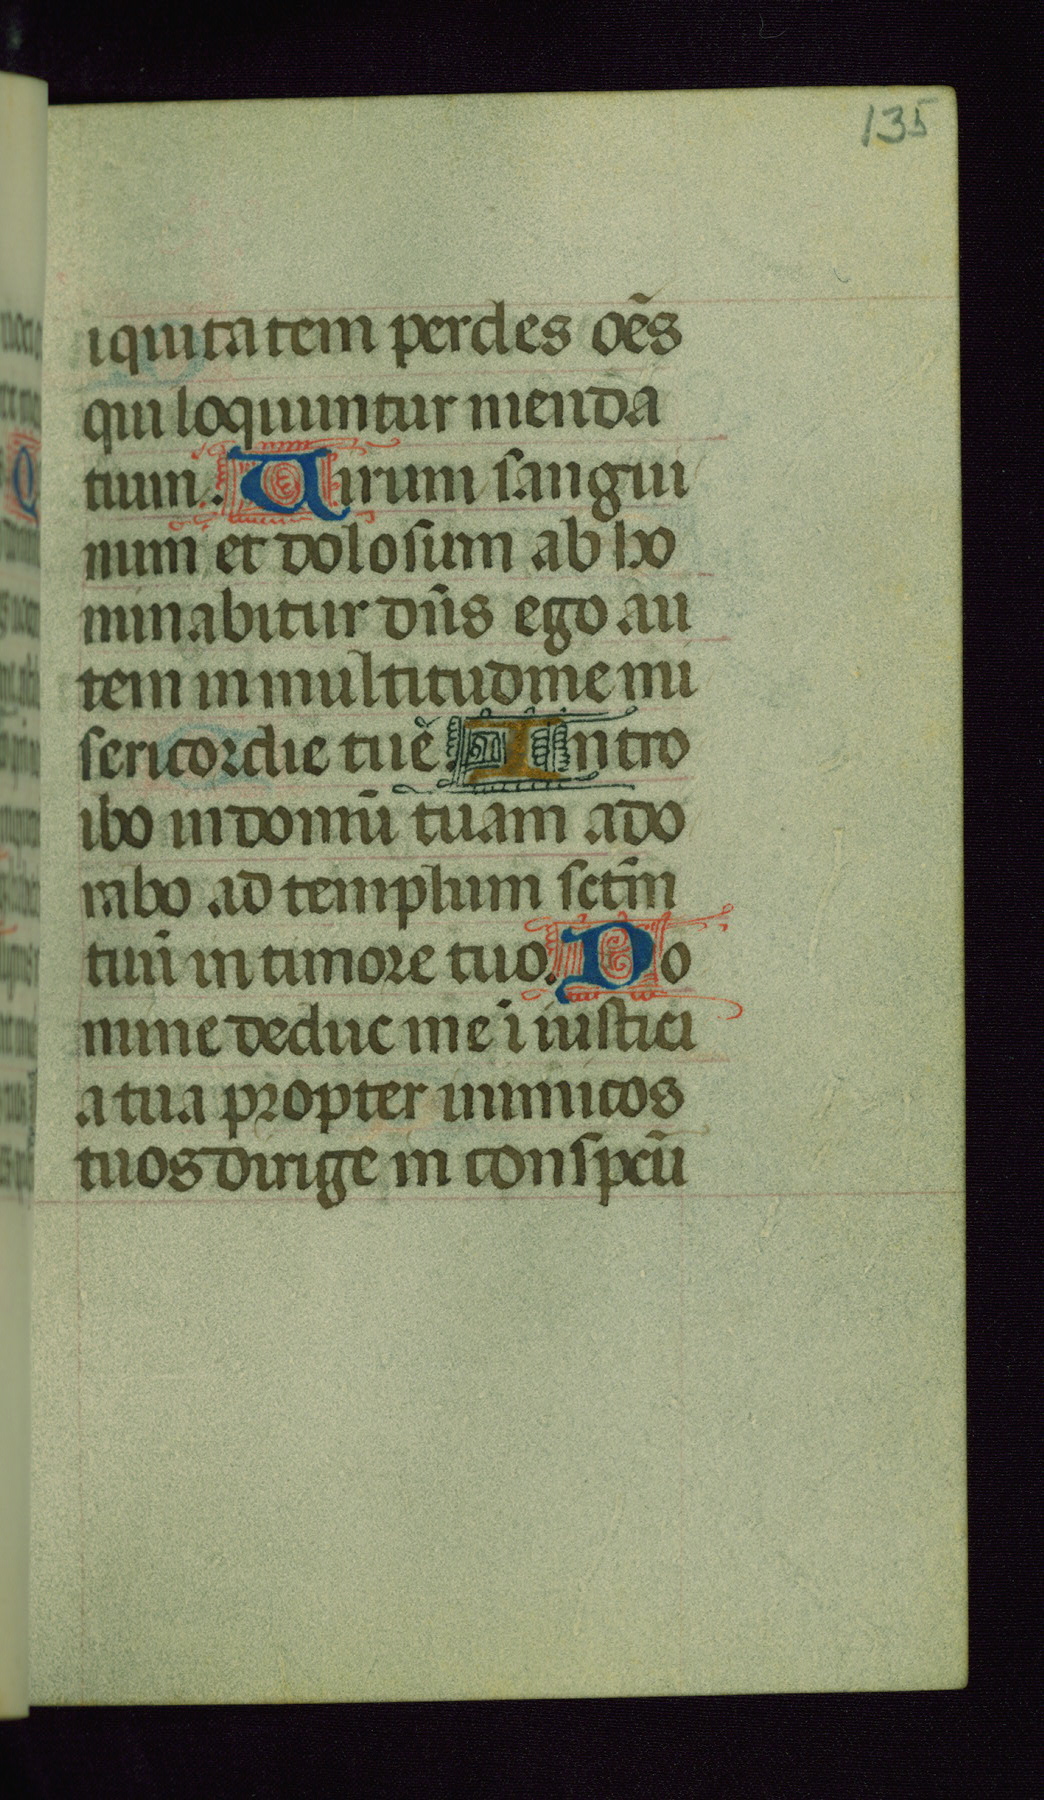 135
iquitatem perdes oēs
qui loquuntur menda
tium. Uirum sangui
num et dolosum ab ho
minabitur dn̄s ego au
tem in multitudine mi
sericordie tue Intro
ibo in domū tuam ado
rabo ad templum sctm̄
tuū in timore tuo. Do
mine deduc me ī iustici
a tua propter inimicos
tuos dirige in conspcū